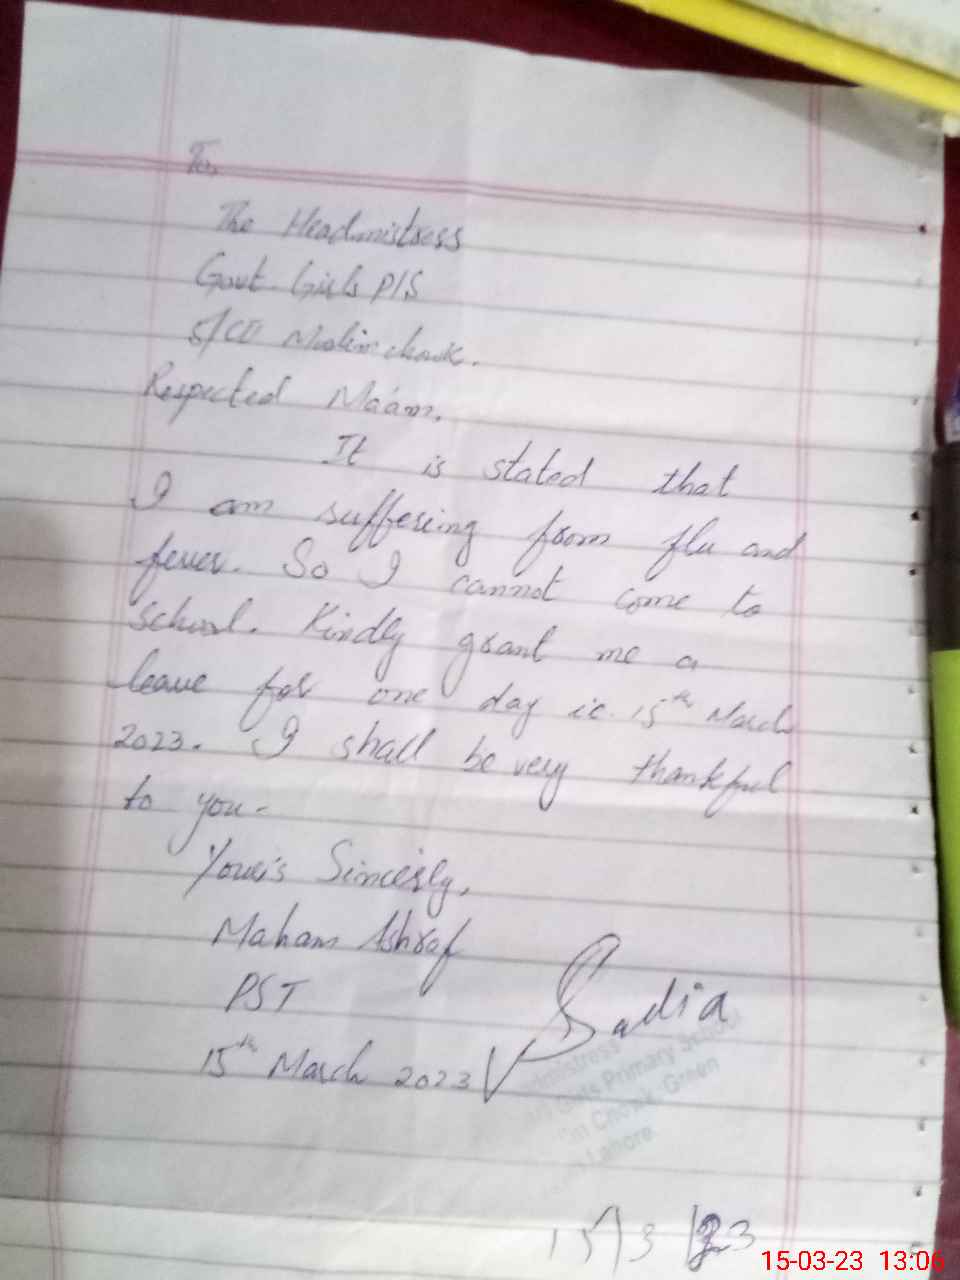 To,
The Headmistress
Govt. Girls P/S
Respected Ma'am.
It is stated that
I am suffering from flu and
fever. So I cannot come to
school. Kindly grant me a
leave for one day i.e. 15th March
2023. I shall be very thankful
to you.
Your's Sincerly,
Maham Ashraf
PST
15th March 2023
Sadia
Girls Primary School
Green
Lahore.
15/3/23
15-03-23 13:06